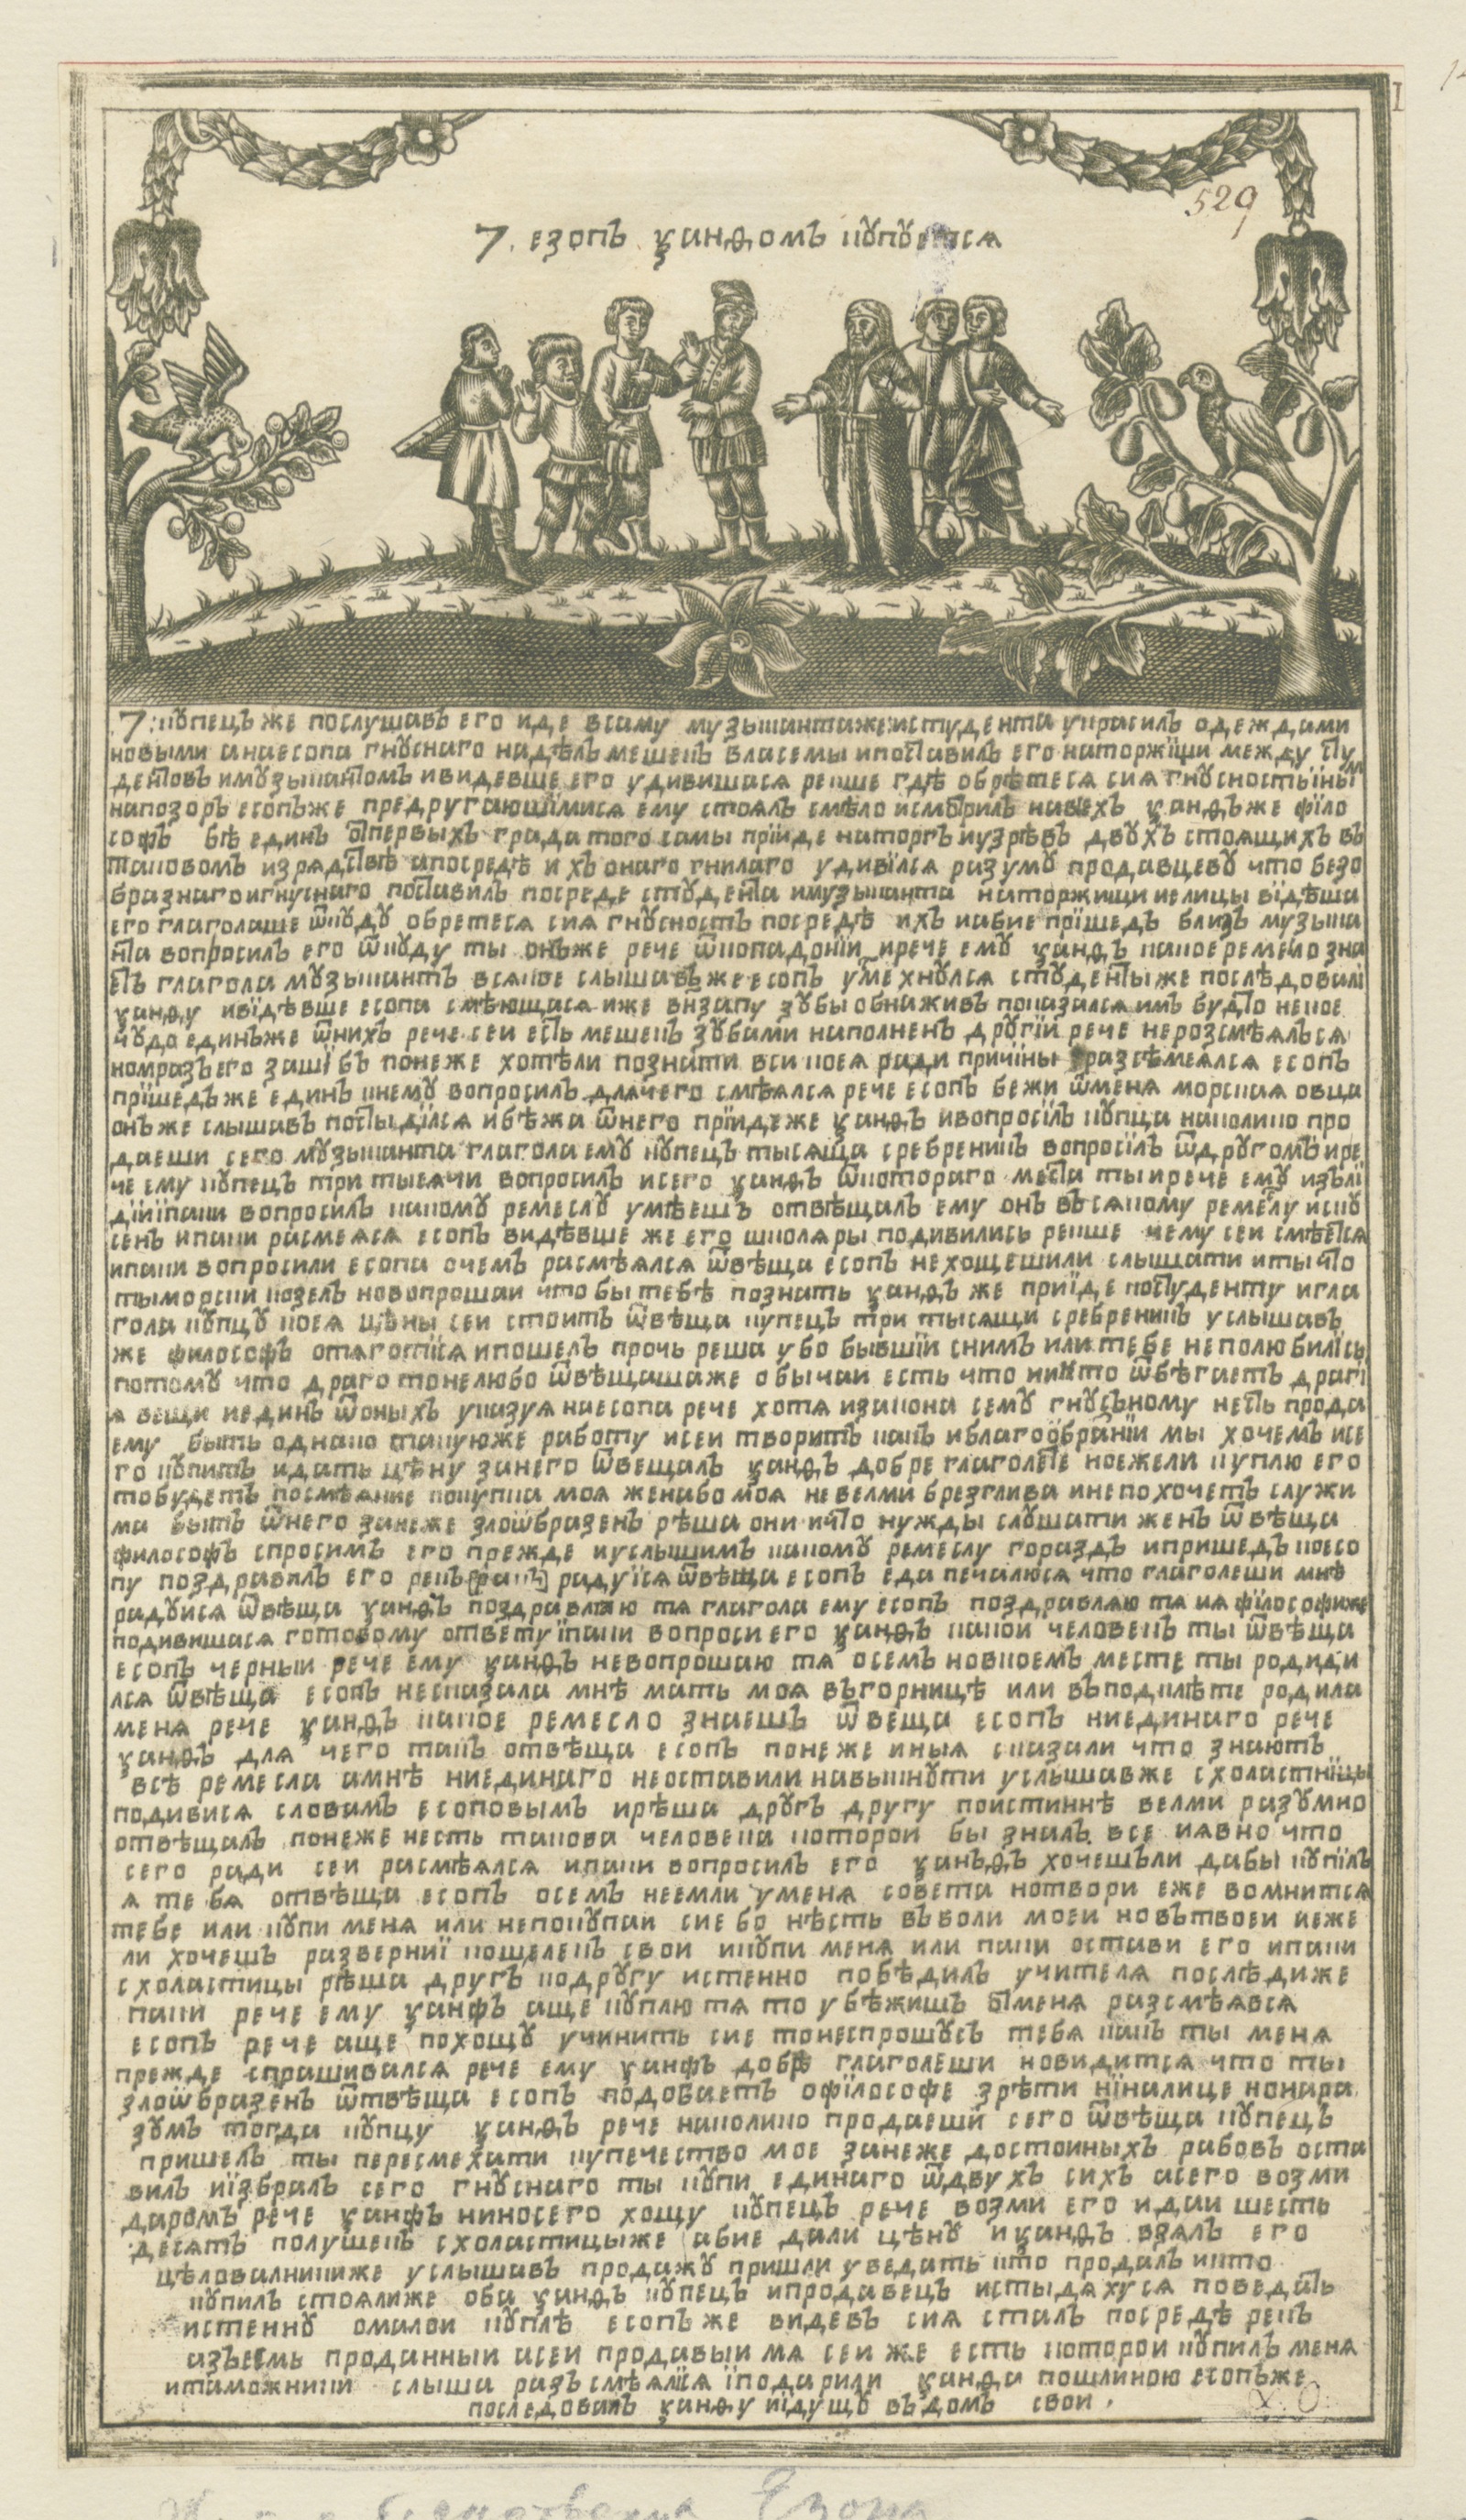 529
7. езопъ ѯанѳомъ купуется
7: купецъ же послушавъ его иде всаму музыкантаже истудента украсилъ одеждами
новыми анаесопа гнꙋснаго надѣлъ мешекъ власемы ипоставилъ его наторжїщи между сту
дентовъ имꙋзыкантомъ ивидевше его удивишася рекше гдѣ обрѣтеся сия гнꙋсностьіны
напозоръ есопъже предругающїмися ему стоялъ смѣло исмотрилъ навсехъ ѯанѳъже філо
софъ бѣ единъ ѿпервыхъ града того самы прїиде наторгъ иузрѣвъ двꙋхъ стоящихъ въ
таковомъ изрядствѣ апосредѣ ихъ онаго гнилаго удивїлся разумꙋ продавцевꙋ что безо
бразнагоигнуснаго поставилъ посреде стꙋдента имꙋзыканта наторжищи иелицы вїдѣша
его глаголаше ѿкꙋдꙋ обретеся сия гнꙋсность посредѣ ихъ иабие прїшедъ близъ музыка
нта вопросилъ его ѿкуду ты онъже рече ѿкопадокїи ирече емꙋ ѯанѳъ какое ремесло зна
етъ глагола мꙋзыкантъ всякое слышавъже есопъ усмехнꙋлся стꙋдентыже послѣдовалі
ѯанѳу ивїдѣвше есопа смѣющася иже внзапу зꙋбы обнаживъ показался имъ будто некое
чꙋдо единъже ѿнихъ рече сеи есть мешекъ зꙋбами наполненъ дрꙋгїи рече нерозсмѣялься
номразъего зашїбъ понеже хотѣли познати вси коея ради причїны разсѣмеялся есопъ
прїшедъже единъ кнемꙋ вопросилъ длячего смѣялся рече есопъ бежи ѿменя морская овца
онъже слышавъ постыдїлся ибѣжа ѿнего прїидеже ѯанѳъ ивопросїлъ кꙋпца наколико про
даеши сего мꙋзыканта глагола емꙋ кꙋпецъ тысяща сребреникъ вопросїлъ ѿдрꙋгомъ ире
че ему кꙋпецъ три тысячи вопросилъ исего ѯанѳъ ѿкотораго места ты ирече емꙋ изълї
дїиїпаки вопросилъ какомꙋ ремеслꙋ умѣешъ отвѣщалъ ему онъ въсякому ремеслу искꙋ
сенъ ипаки расмеяся есопъ видѣвше же его школяры подивились рекше чему сеи смѣется
ипаки вопросили есопа очемъ расмѣялся ѿвѣща есопъ нехощешили слышати иты что
тыморски козелъ новопрошаи чтобы тебѣ познать ѯанѳъ же приїде костуденту игла
гола кꙋпцꙋ коея цѣны сеи стоитъ ѿвѣща купецъ три тысящи сребреникъ услышавъ
же философъ отяготїся ипошелъ прочь реша убо бывшїи снимъ или тебе неполюбились
потомꙋ что драго тонелюбо ѿвѣщашаже обычаи есть что никто ѿбѣгаетъ драгі
я вещи иединъ ѿоныхъ указуя наесопа рече хотя изакона семꙋ гнꙋсьному несть прода
ему быть однако такуюже работу исеи творитъ какъ иблагообранїи мы хочемъ исе
го кꙋпить идать цѣну занего ѿвещалъ ѯанѳъ добре глаголете ноежели куплю его
тобудетъ посмѣяние покупка моя женабо моя невелми брезглива инепохочетъ служи
ма быть ѿнего занеже злоѡбразенъ рѣша они ичто нужды слꙋшати женъ ѿвѣща
философъ спросимъ его прежде иуслышимъ какомꙋ ремеслу гораздъ ипришедъ коесо
пу поздравилъ его рекъ радуїся ѿвѣща есопъ еда печалюся что глаголеши мнѣ
радꙋися ѿвѣща ѯанѳъ поздравляю тя глагола ему есопъ поздравляю тя ия філософиже
подивишася готовому ответу їпаки вопроси его ѯанѳъ какои человекъ ты ѿвѣща
есопъ черныи рече ему ѯанѳъ невопрошаю тя осемъ новкоемъ месте ты родиди
лся ѿвѣща есопъ несказала мнѣ мать моя въгорницѣ или въподклѣте родила
меня рече ѯанѳъ какое ремесло знаешъ ѿвеща есопъ ниединаго рече
ѯанѳъ для чего такъ отвѣща есопъ понеже иныя сказали что знаютъ
всѣ ремесла амнѣ ниединаго неоставили навыкнꙋти услышавже схоластнїцы
подивися словамъ есоповымъ ирѣша дрꙋгъ другу поистиннѣ велми разꙋмно
отвѣщалъ понеже несть такова человека которои бы зналъ все иявно что
сего ради сеи расмѣялся ипаки вопросилъ его ѯанъѳъ хочешъли дабы кꙋпїлъ
я тебя отвѣща есопъ осемъ неемли уменя совета нотвори еже вомнится
тебе или кꙋпи меня или непокꙋпаи сие бо нѣсть въволи моеи новътвоеи иеже
ли хочешъ разверниї кошелекъ свои икꙋпи меня или паки остави его ипаки
схоластицы рѣша другъ кодрꙋгу истенно побѣдилъ учителя послѣдиже
паки рече ему ѯанфъ аще кꙋплю тя то убѣжишъ ѿменя разсмѣявся
есопъ рече аще похощꙋ учинить сие тонеспрошꙋсь тебя какъ ты меня
прежде спрашивался рече ему ѯанфъ добрѣ глаголеши новидится что ты
злоѡбразенъ ѿтвѣща есопъ подобаетъ офїлософе зрѣти нїналице нонара
зꙋмъ тогда кꙋпцу ѯанѳъ рече наколико продаеши сего ѿвѣща кꙋпецъ
пришелъ ты пересмехати купечество мое занеже достоиныхъ рабовъ оста
вилъ иїзбралъ сего гнꙋснаго ты кꙋпи единаго ѿдвухъ сихъ асего возми
даромъ рече ѯанфъ ниносего хощу кꙋпецъ рече возми его идаи шесть
десять полушекъ схоластицыже абие дали цѣнꙋ иѯанѳъ взялъ его
цѣловалникиже услышавъ продажꙋ пришли уведать кто продалъ икто
кꙋпилъ стоялиже оба ѯанѳъ кꙋпецъ ипродавецъ истыдяхуся поведать
истеннꙋ омалои кꙋплѣ есопъже видевъ сия сталъ посредѣ рекъ
азъесмь проданныи асеи продавыи мя сеи же есть которои кꙋпилъ меня
итаможники слыша разъсмѣялїся їподарили ѯанѳа пошлиною есопъже
последовалъ ѯанѳу идущꙋ въдомъ свои.